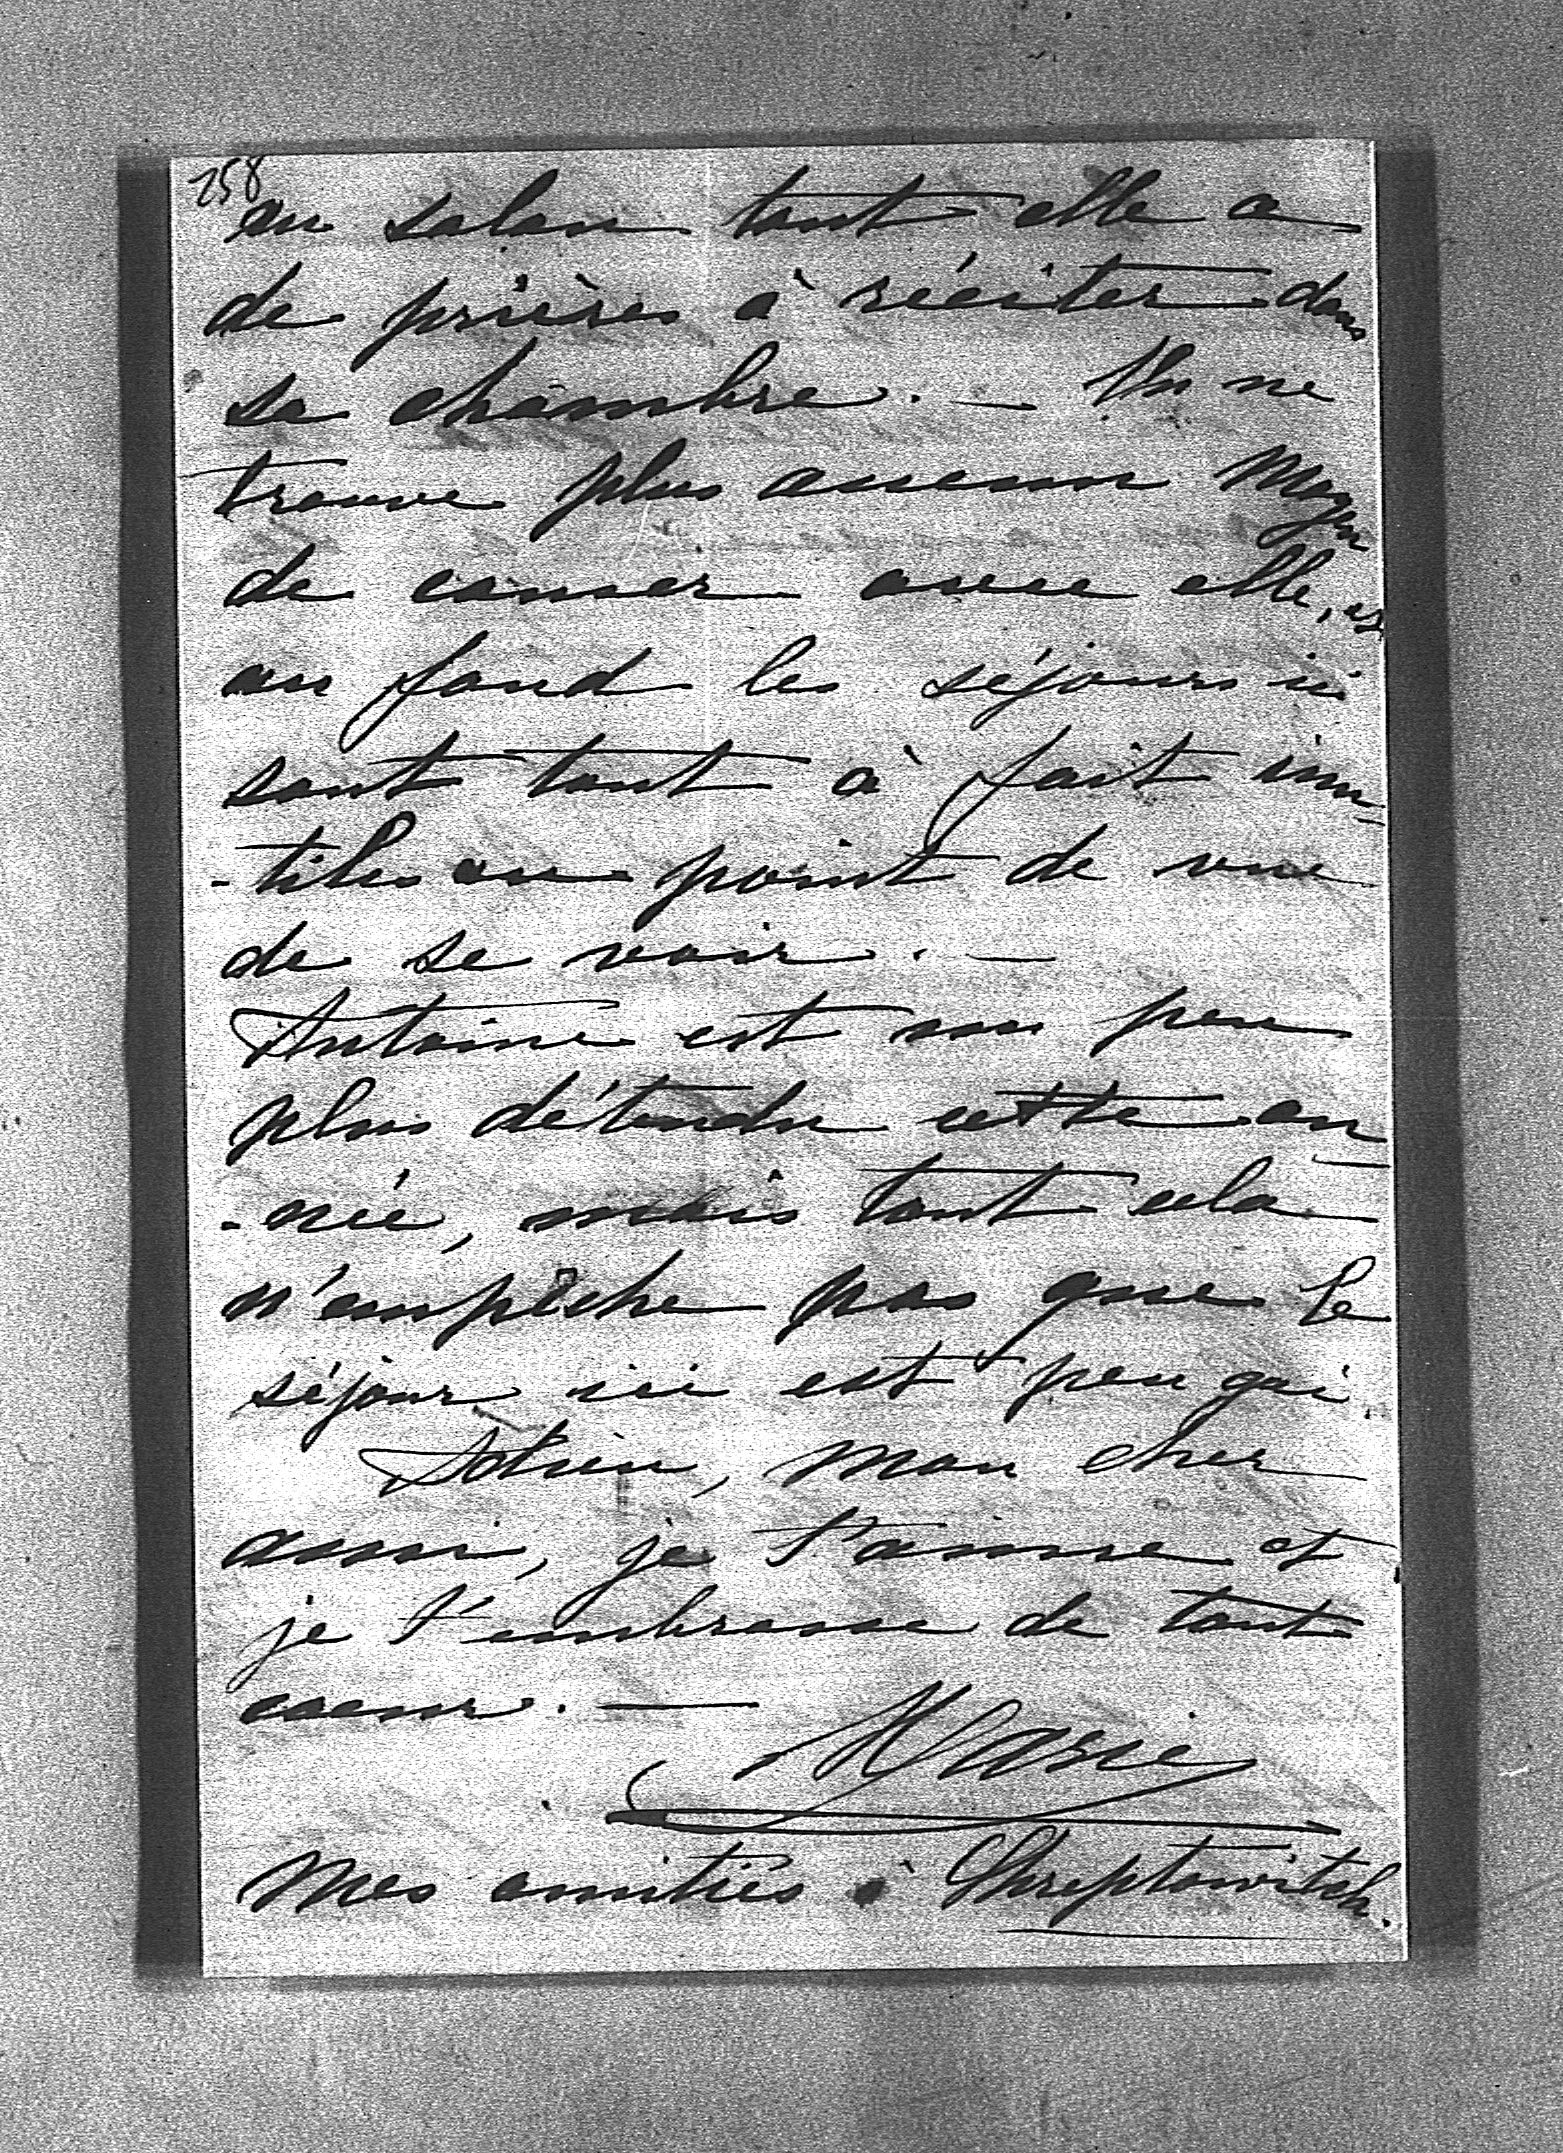 258
au salon tant elle a
de prières à réciter dans
sa chambre. — On ne
trouve plus aucun moyen
de causer avec elle, et
au fond les séjours ici
sont tout à fait inu-
-tiles au point de vue
de se voir. —
Antoine est un peu
plus détendu cette an-
-née, mais tout cela
n'empêche pas que le
séjour ici est peu gai.
Adieu, mon cher
ami, je t'aime et
je t'embrasse de tout
coeur. —
Marie
Mes amitiés à Chreptowitch.